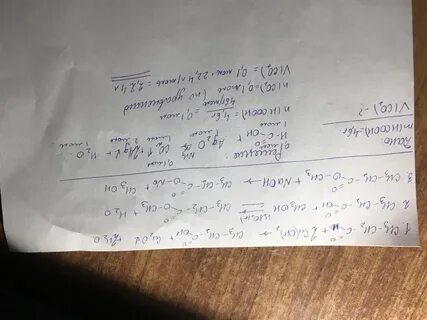 1. CH₃-CH₂-C(=O)H + 2Cu(OH)₂ → CH₃-CH₂-C(=O)OH + Cu₂O↓ + 2H₂O
2. CH₃-CH₂-C(=O)OH + CH₃OH ⇌ CH₃-CH₂-C(=O)O-CH₃ + H₂O
3. CH₃-CH₂-C(=O)O-CH₃ + NaOH → CH₃-CH₂-C(=O)O-Na + CH₃OH
Дано
m(HCOOH)=4,6г
V(CO₂)-?
Решение:
0,1моль 0,1моль
H-C(=O)-OH + Ag₂O NH₃→ CO₂↑ + 2Ag↓ + H₂O
1моль 1моль 1моль 2моль 1моль
n(HCOOH) = 4,6г / 46г/моль = 0,1моль
n(CO₂) = 0,1моль (по уравнению)
V(CO₂) = 0,1моль · 22,4л/моль = 2,24л